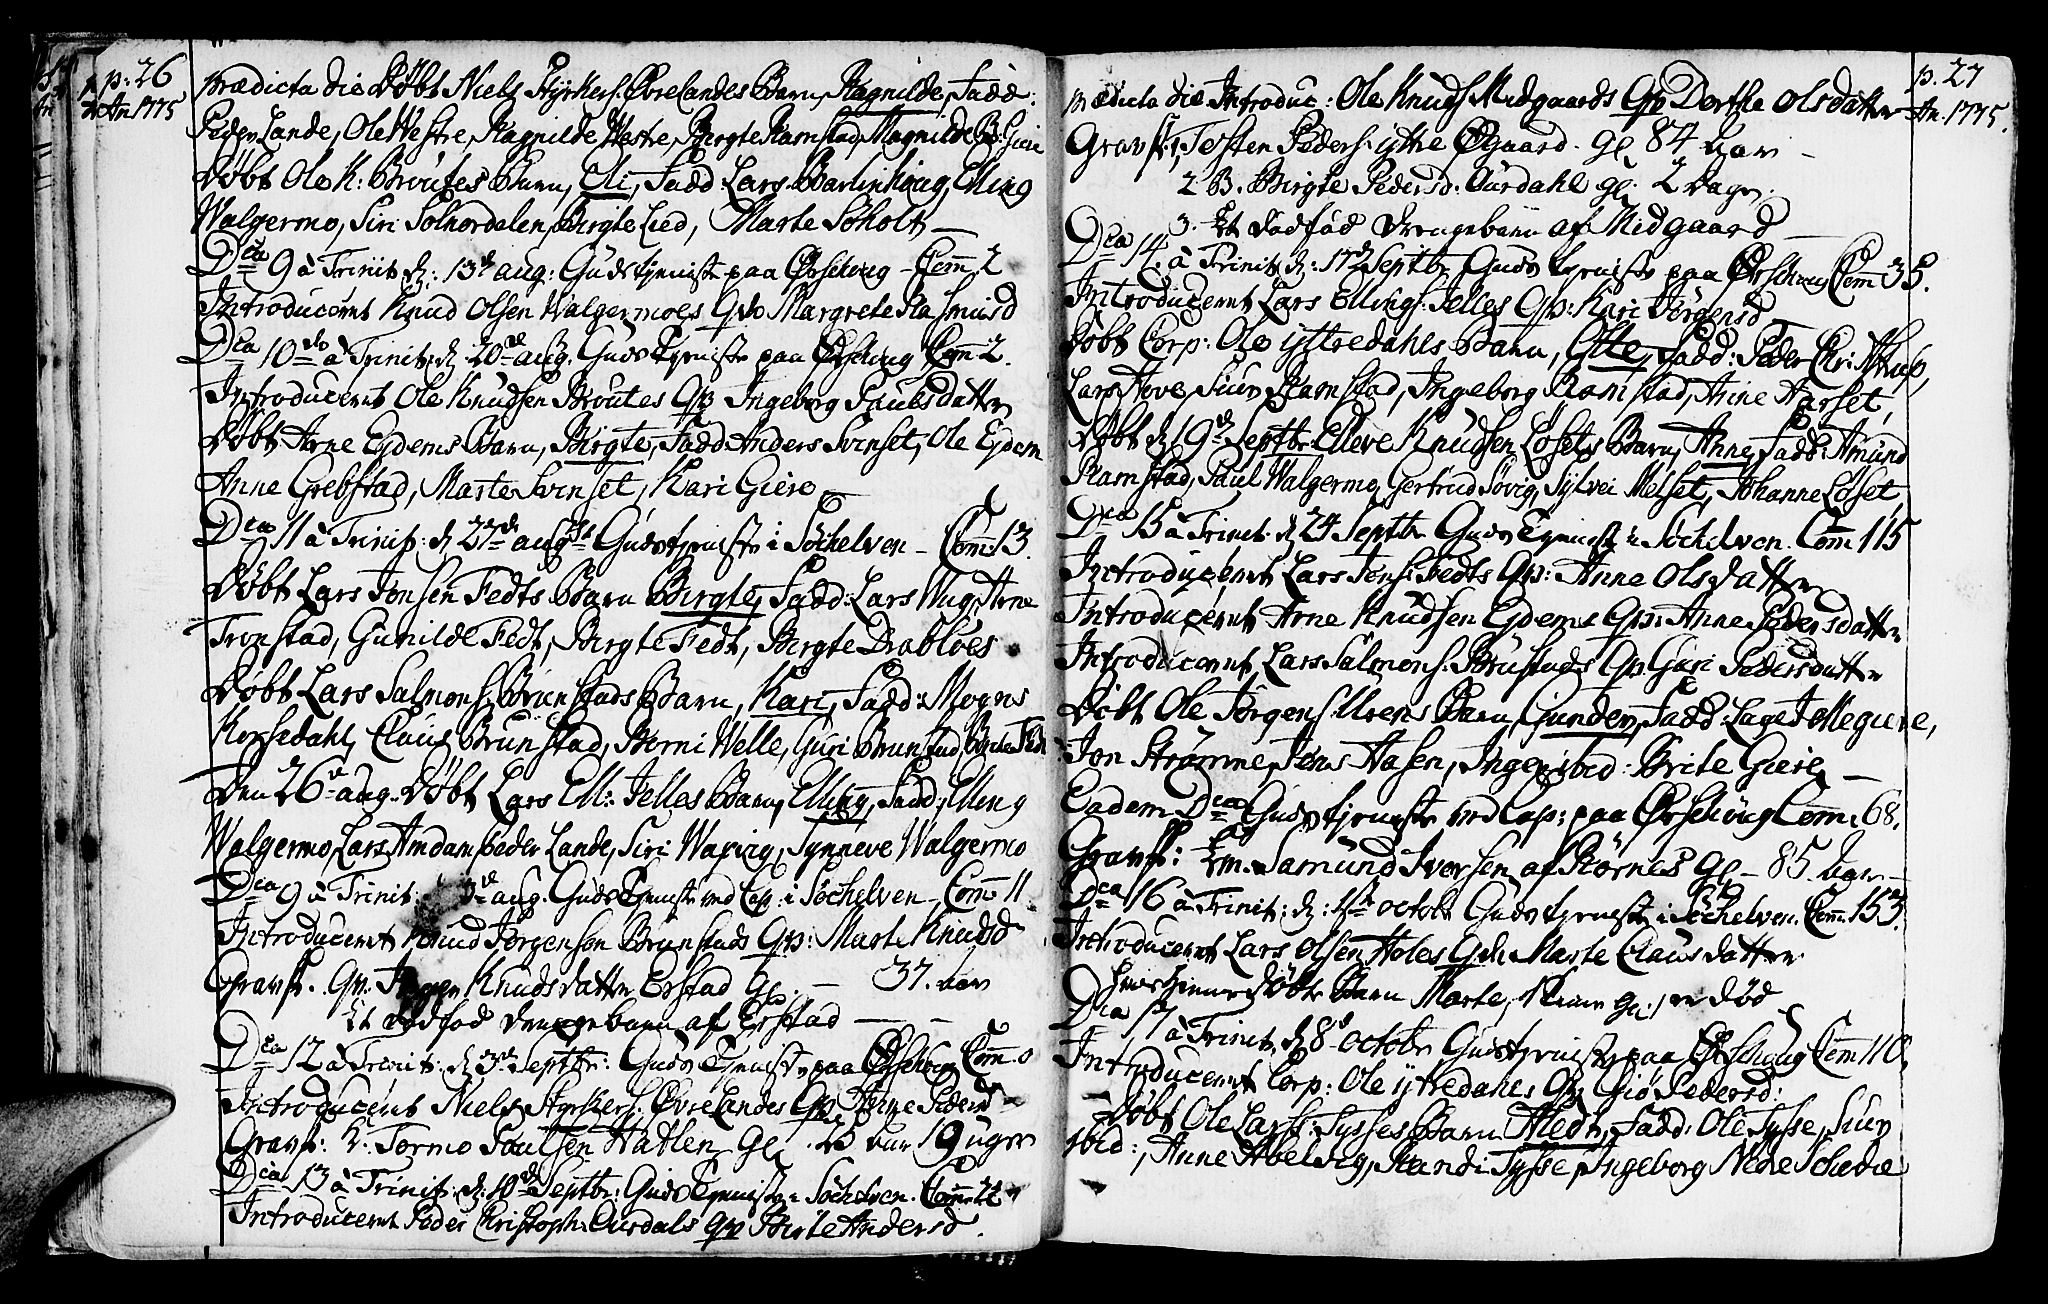 p. 26
An 1775
Prædicta die Døbt Niels Styrkers. Øvrelandes Barn, Ragnilde, Fadd:
Peder Lande, Ole Westre, Ragnilde Westre, Birgte Ramstad, Magnilde
Døbt Ole K: Broutes Barn, Eli, Fadd Lars Barlinhoug, Elling
Walgermo, Siri Solnørdelen, Birgte Lied, Marte Søholt
Dca 9 à Trinit. d: 13de aug: Guds tjeniste paa Ørschoug Com 2
Introduceret Knud Olsen Walgermoes Qv: Margrete Rasmusd
Dca 10de à Trinit: d 20de aug. Guds Tjeniste paa Ørschoug Com 2.
Introduceret Ole Knudsen Broutes Qv Ingeborg Paulsdatter
Døbt Arne Ejdems Barn, Birgte, Fadd Anders Svinset, Ole Ejdem
Anne Grebstad, Marte Svinset, Kari Giere
Dca 11 à Trinit: d 27de augst Guds tjeniste i Søchelven Com 13.
Døbt Lars Jensen Fedts Barn Birgte, Fadd: Lars Wug, Arne
Tronstad, Gunilde Fedt, Birgte Fedt, Birgte Drabløes
Døbt Lars Salmons. Brunstads Barn, Kari, Fadd: Mogns
Korsedahl, Claus Brunstad, Berni Welle, Guri Brunstad,
Den 26de aug. Døbt Lars Ell: Jelles Barn, Elling, Fadd: Elling
Walgermo, Lars Amdam, Peder Lande, Siri Waxvig, Synneve Walgermo
Dca 9 à Trinit: 3de aug. Guds Tjenist ved Cap: i Søchelven Com 11
Introduceret Knud Jørgensøn Brunstads Qv: Marte Knudsd
Grafst. Qv. Knudsdatter Erstad gl. 37. aar
Et dødfød drengebarn af Erstad
Dca 12 à Trinit: d 3de Septbr: Guds Tjeniste paa Ørschoug Com 0
Introduceret Niels Styrkers. Øvrelandes Qv Anne Pedersd
Grafst: K. Tormo Paulsen Hatlen gl aar 19 uger
Dca 13 à Trinit: d: 10de Septbr: Guds Tjeniste i Søchelven. Com 22
Introduceret Peder Christoph: Aursdals Qv Birte Andersd.
p. 27
An. 1775.
Prædicta die Introduc: Ole Knuds. Midgaards Qv Dorthe Olsdatter
Grafst: 1, Testen Peders. yttre Øgaard. gl 84 aar
2 B. Birgte Pedersd. Aurdahl gl. 2 Dage.
3. Et dødfød drengebarn af Midgaard
Dca 14. à Trinit d: 17de Septbr Guds tjeniste paa Ørschoug Com 35.
Introduceret Lars Ellings: Jelles Qv: Kari Jørgensd
Døbt Corp: Ole yttredahls Barn, Otte, Fadd: Peder Chr: Astrup,
Lars Hove, Siur Ramstad, Ingeborg Ramstad, Anne Aarset,
Døbt d 19de Septbr Elleve Knudsen Løsets Barn, Anne, Fadd: Amund
Ramstad, Paul Walgermo, Gertrud Søvig, Sylvei Melset, Johanne Løset
Dca 15 à Trinit. d 24 Septbr Guds Tjenist i Søchelven. Com 115
Introduceret Lars Jens: Fedts Qv: Anne Olsdatter
Introduceret Arne Knudsen Ejdems Qv: Anne Pedersdatter
Introduceret Lars Salmons. Brustads Qv Guri Pedersdatter
Døbt Ole Jørgens. Urens Barn, Gunder, Fadd: Lage Jollegiere,
Jon Strømme, Jens Aasen, Inger ibid: Brite Giere
Eadem Dca Guds tjeniste ved Cap: paa Ørschoug Com. 68.
Grafst: Em. Samund Iversen af Kørnes gl 85. aar
Dca 16 à Trinit: d: 1ste octobr Guds tjeniste i Søchelven. Com. 153.
Introduceret Lars Olsen Holes Qv. Marte Clausdatter
hvis hiemdøbte Barn Marte, er død
Dca 17 à Trinit d 8de octobr Guds tjeniste paa Ørschoug Com 110.
Introduceret Corp: Ole ytredahls Qv Giø Pedersd:
Døbt Ole Larss: Tysses Barn Hedr, Fadd: Ole Tysse, Siur
ibid:, Anne Abelvig, Randi Tysse, Ingeborg Nedre Schedie